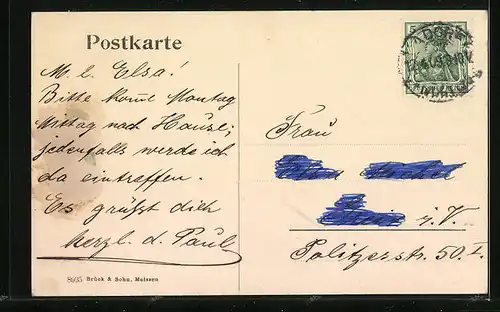 Postkarte
M. l. Elsa!
Bitte komme Montag
Mittag nach Hause;
jedenfalls werde ich
da eintreffen.
Es grüßt dich
herzl. d. Paul.
8935 Brück & Sohn, Meissen
5
ADORF
Frau
i. V.
Politzerstr. 50. I.